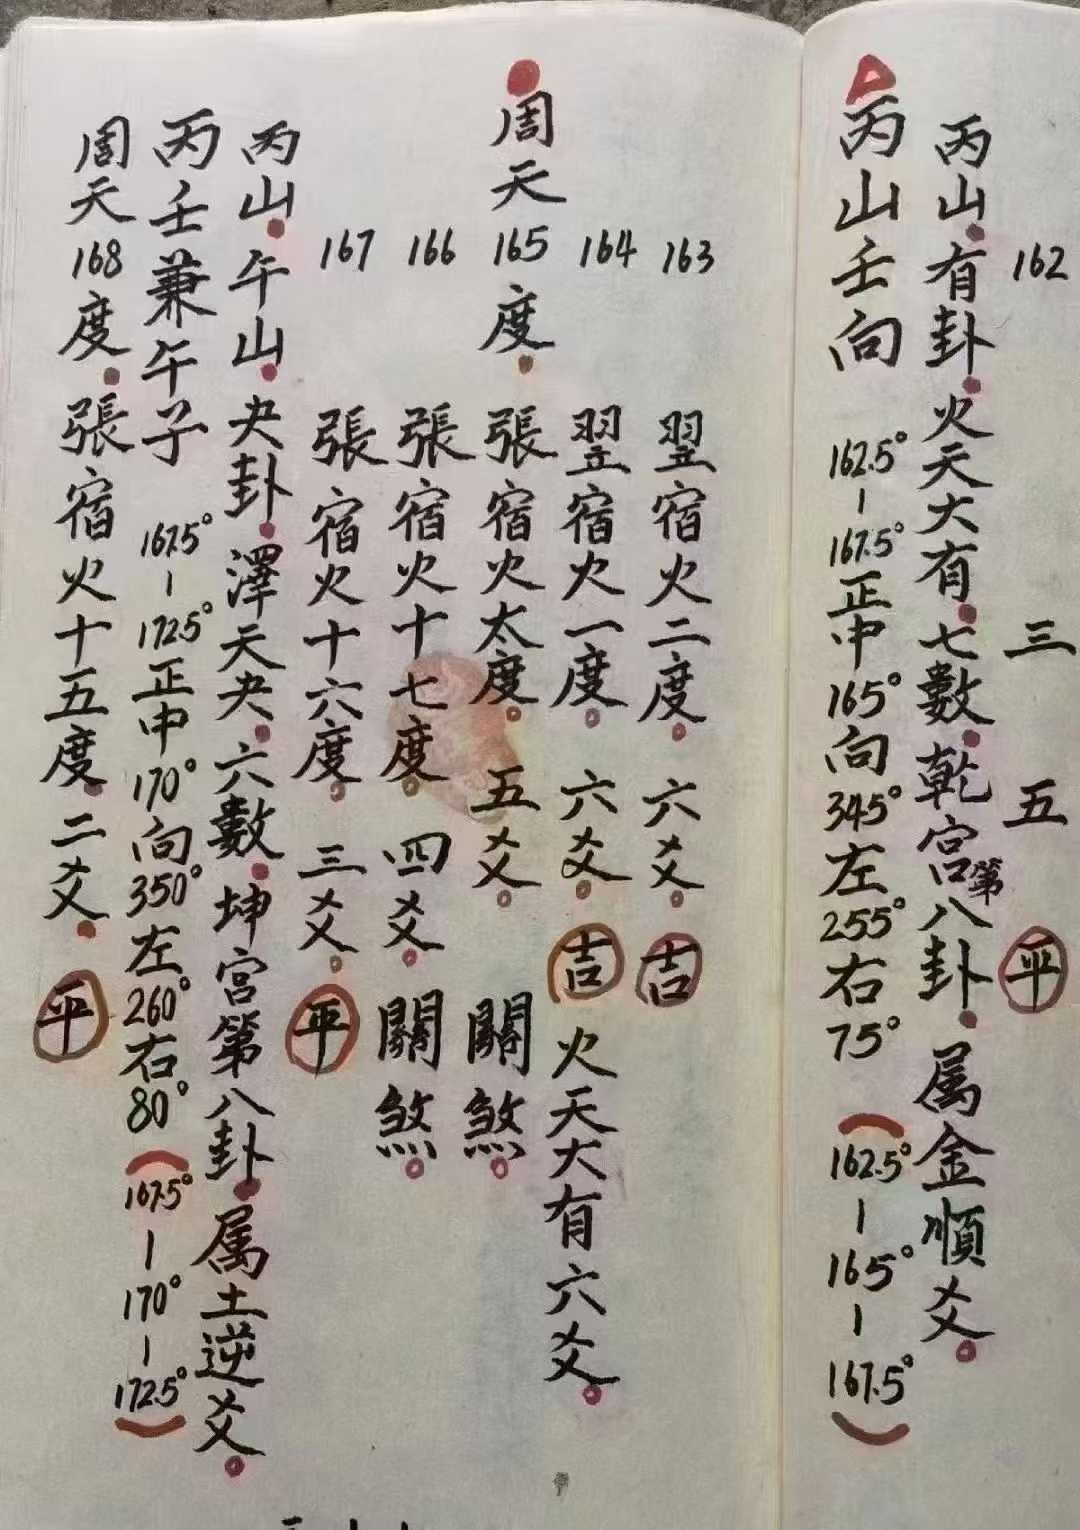 162 三 五 平
丙山.有卦.火天大有.七數.乾宮第八卦.属金順爻.
丙山壬向 162.5°-167.5°正中165°向345°左255°右75° (162.5°-165°-167.5°)
163 翌宿火二度。六爻。吉
164 翌宿火一度。六爻。吉 火天大有六爻。
周天165度.張宿火太度。五爻。關煞。
166 張宿火十七度。四爻。關煞。
167 張宿火十六度。三爻。平
丙山.午山.夬卦.澤天夬.六數.坤宮第八卦.属土逆爻。
丙壬兼午子 167.5°-172.5°正中170°向350°左260°右80° (167.5°-170°-172.5°)
周天168度.張宿火十五度.二爻.平